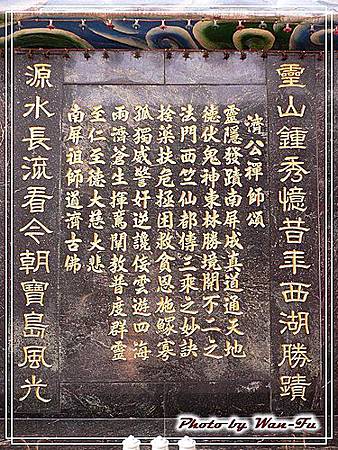 靈山鍾秀憶昔年西湖勝蹟
濟公禪師頌
靈隱發蹟南屏成真道通天地
德伏鬼神東林勝境開不二之
法門西竺仙都傳三乘之妙訣
捨藥扶危極困救貧恩施鰥寡
孤獨威警奸逆讒佞雲遊四海
雨濟蒼生揮萬開教普度群靈
至仁至德大慈大悲
南屏祖師道濟古佛
源水長流看今朝寶島風光
Photo by Wan-Fu